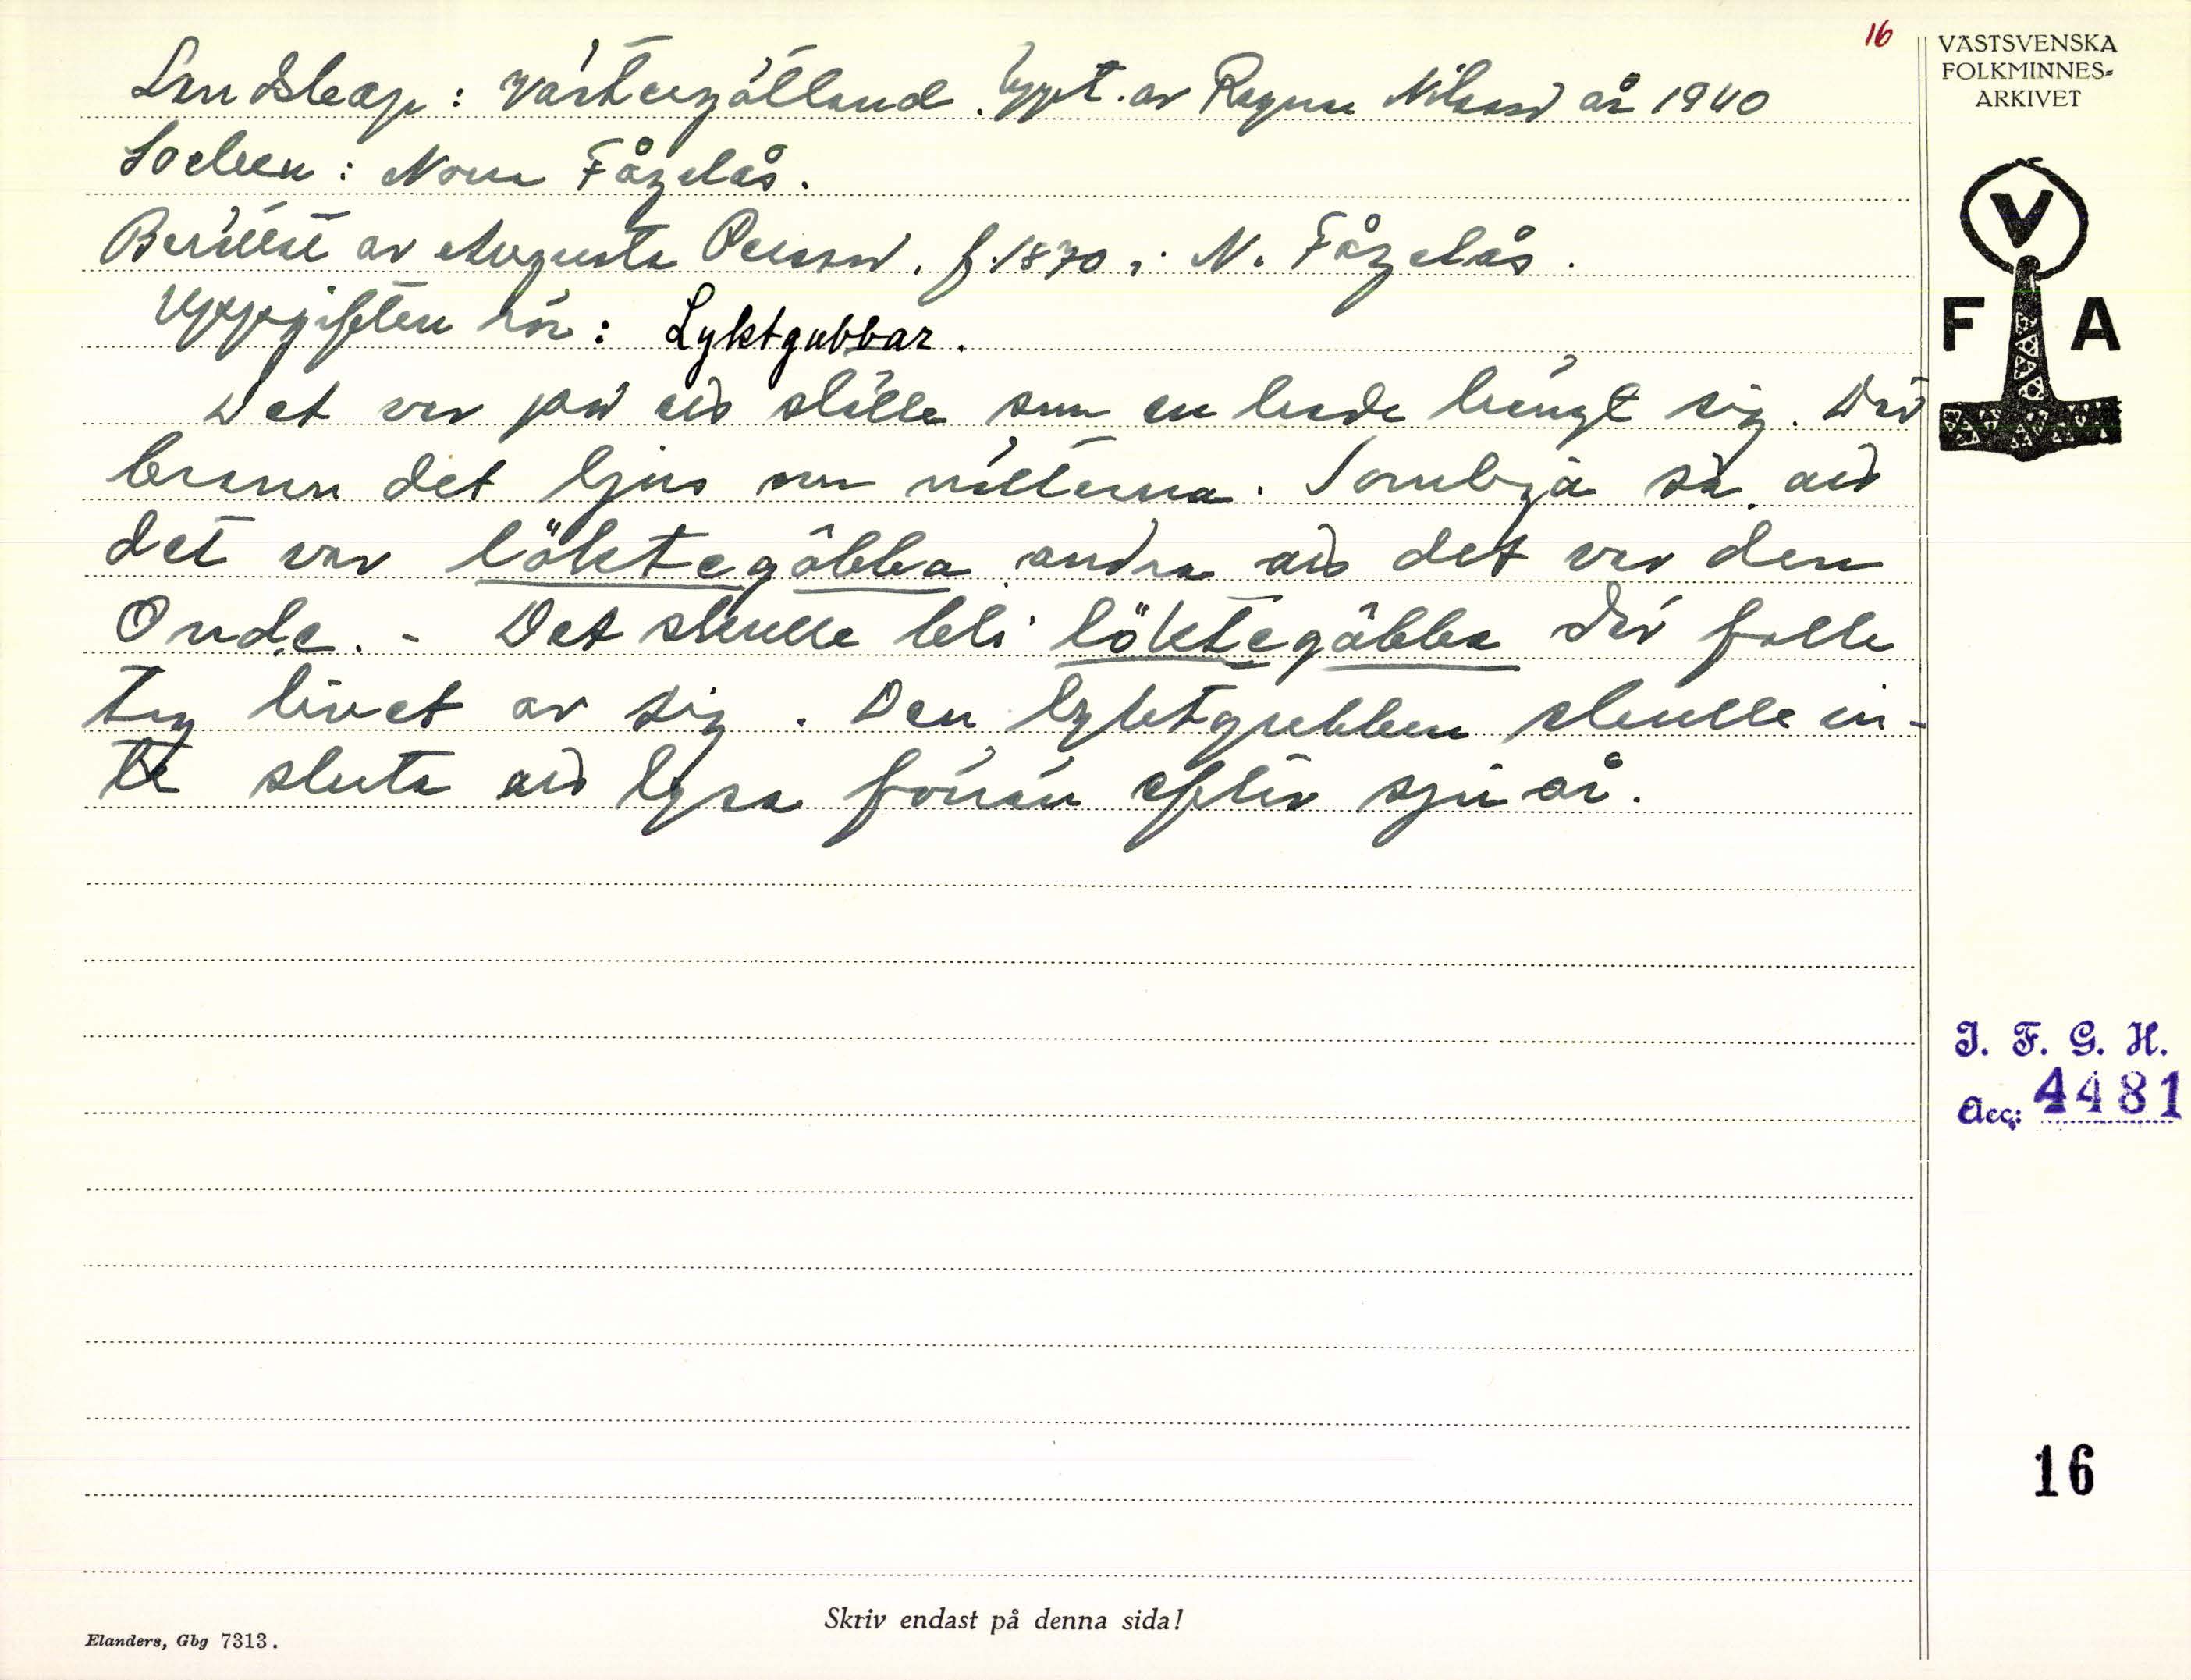 16
VÄSTSVENSKA
FOLKMINNES-
ARKIVET
V
F A
Landskap: Västergötland. Uppt. av Ragnar Nilsson år 1940
Socken: Norra Fågelås.
Berättat av Augusta Persson. f. 1870 i N. Fågelås.
Uppgiften rör: Lyktgubbar.
Det var på ett ställe som en hade hängt sig. Där
brann det ljus om nätterna. Somliga sa att
det var löktegôbba andra att det var den
Onde. - Det skulle bli löktegôbba där folk
tog livet av sig. Den lyktgubben skulle in-
te sluta att lysa förrän efter sju år.
J. F. G. H.
Acc: 4481
16
Skriv endast på denna sida!
Elanders, Gbg 7313.